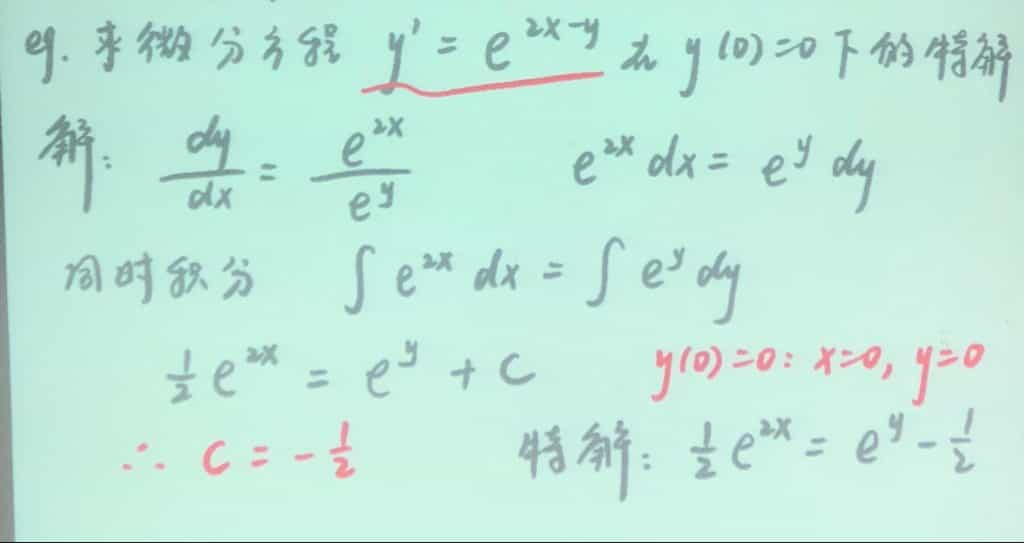 eg. 求微分方程 y' = e^{2x-y} 在 y(0)=0 下的特解
解: dy/dx = e^{2x}/e^y    e^{2x} dx = e^y dy
同时积分 ∫ e^{2x} dx = ∫ e^y dy
1/2 e^{2x} = e^y + C    y(0)=0: x=0, y=0
∴ C = -1/2    特解: 1/2 e^{2x} = e^y - 1/2